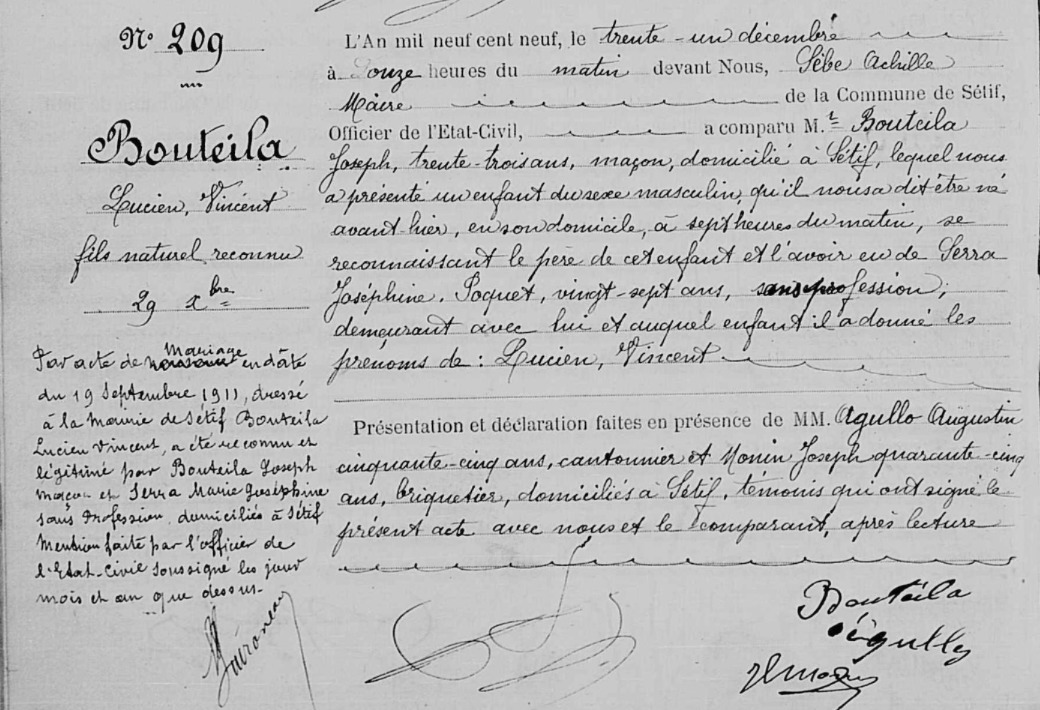 N° 209
Bouteila
Lucien, Vincent
fils naturel reconnu
29 xbre
Par acte de Mariage en date
du 19 Septembre 1911, dressé
à la Mairie de Sétif Bouteila
Lucien Vincent, a été reconnu et
légitimé par Bouteila Joseph
maçon et Serra Marie Joséphine
sans Profession, domiciliés à Sétif
Mention faite par l'officier de
l'Etat-Civil soussigné les jour
mois et an que dessus-
L'An mil neuf cent neuf, le trente-un décembre
à onze heures du matin devant Nous, Sèbe Achille
Maire de la Commune de Sétif,
Officier de l'Etat-Civil, a comparu M. Bouteila
Joseph, trente-trois ans, maçon, domicilié à Sétif, lequel nous
a présenté un enfant du sexe masculin, qu'il nous a dit être né
avant-hier, en son domicile, à sept heures du matin, se
reconnaissant le père de cet enfant et l'avoir eu de Serra
Joséphine, Poquet, vingt-sept ans, sans profession,
demeurant avec lui et auquel enfant il a donné les
prénoms de : Lucien, Vincent
Présentation et déclaration faites en présence de MM. Agullo Augustin
cinquante-cinq ans, cantonnier et Monin Joseph quarante-cinq
ans, briquetier, domiciliés à Sétif, témoins qui ont signé le
présent acte avec nous et le comparant, après lecture
Bouteila